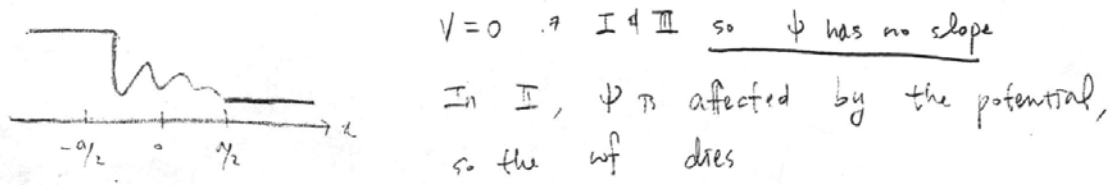 V=0 in I & III so ψ has no slope
In II, ψ is affected by the potential,
so the wf dies
-a/2 0 a/2 x